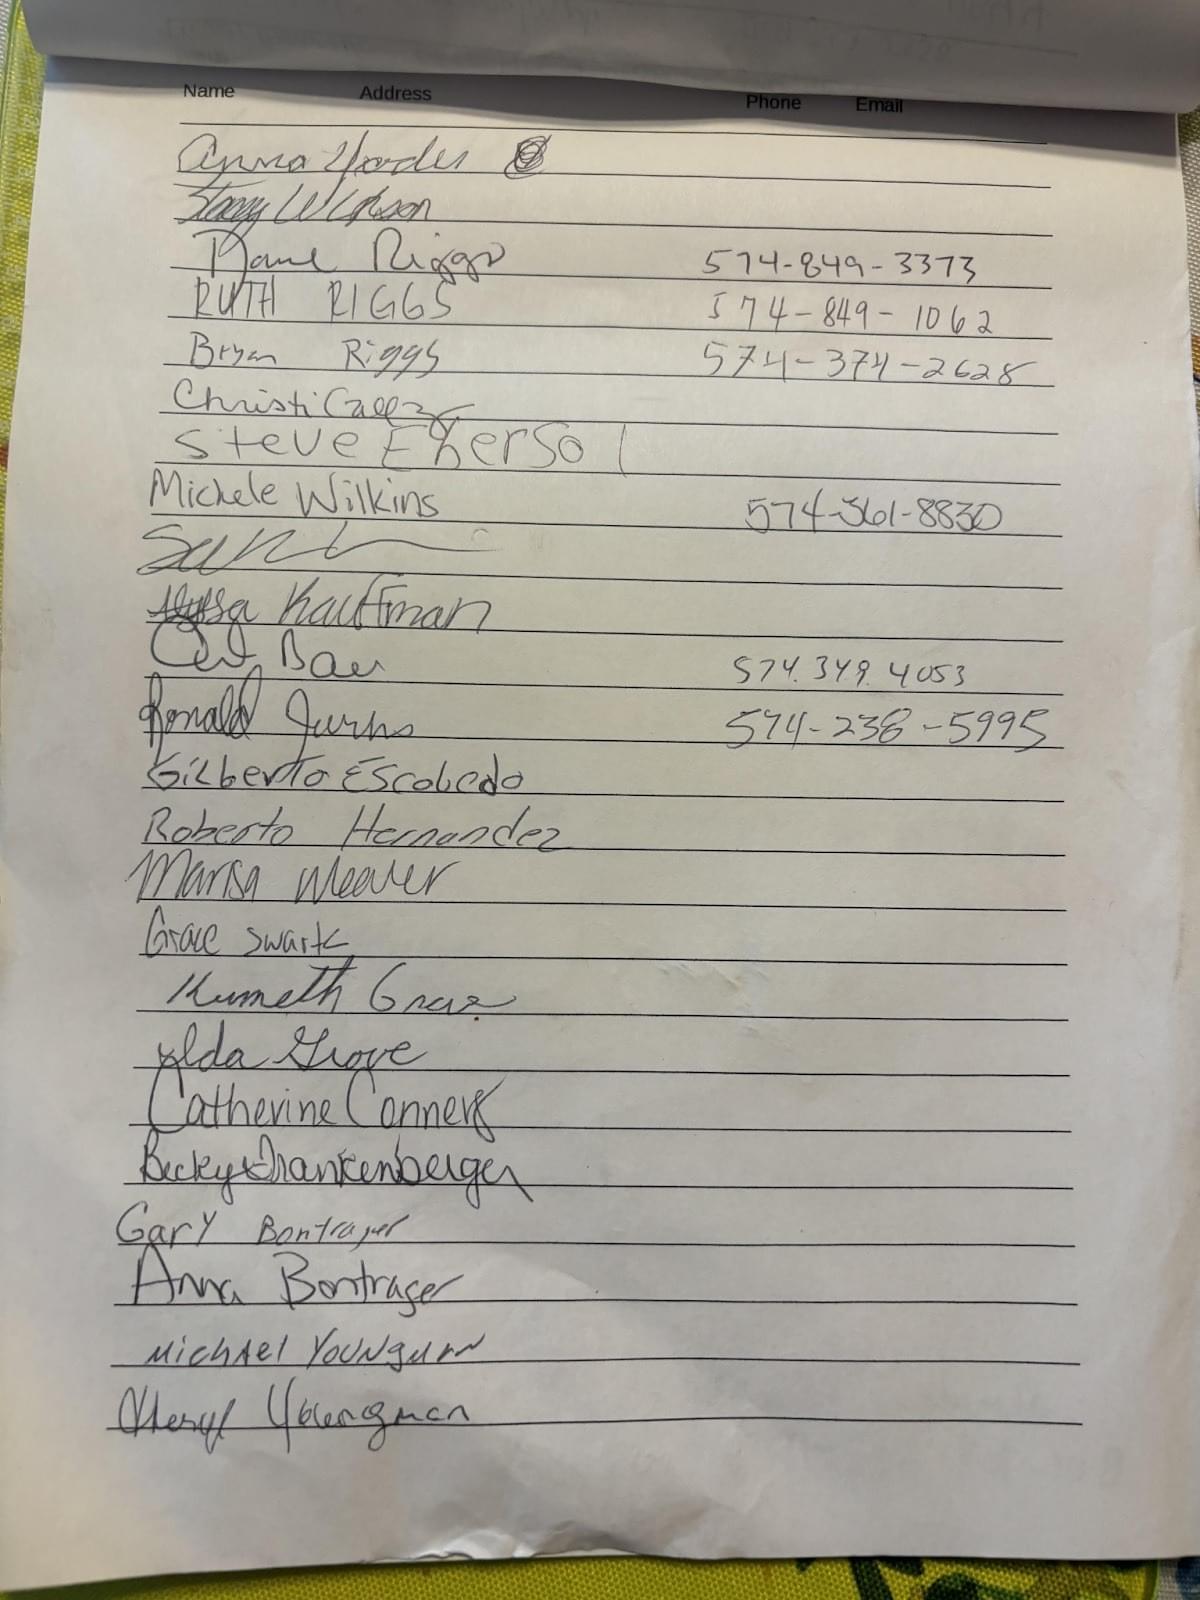 Name Address Phone Email
Anna Yoder
Stacy Wilson
Riggs 574-849-3373
RUTH RIGGS 574-849-1062
Bryan Riggs 574-374-2628
Christi
Steve Ebersol
Michele Wilkins 574-361-8830
Alyssa Kauffman
574.349.4053
Ronald 574-238-5995
Gilberto Escobedo
Roberto Hernandez
Marisa Weaver
Grace Swartz
Kenneth
Alda Grove
Catherine Conners
Becky Frankenberger
Gary Bontrager
Anna Bontrager
Michael Youngman
Cheryl Youngman